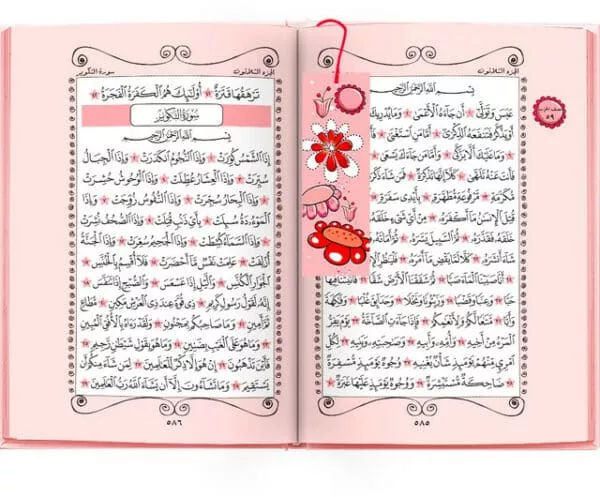 الجزء الثلاثون
نصف الحزب
٥٩
بِسْمِ اللَّهِ الرَّحْمَٰنِ الرَّحِيمِ
عَبَسَ وَتَوَلَّىٰ أَن جَاءَهُ الْأَعْمَىٰ وَمَا يُدْرِيكَ
أَوْ يَذَّكَّرُ فَتَنفَعَهُ الذِّكْرَىٰ أَمَّا مَنِ اسْتَغْنَىٰ
وَمَا عَلَيْكَ أَلَّا يَزَّكَّىٰ وَأَمَّا مَن جَاءَكَ يَسْعَىٰ
فَأَنتَ عَنْهُ تَلَهَّىٰ كَلَّا إِنَّهَا تَذْكِرَةٌ فَمَن شَاءَ
مُّكَرَّمَةٍ مَّرْفُوعَةٍ مُّطَهَّرَةٍ بِأَيْدِي سَفَرَةٍ
قُتِلَ الْإِنسَانُ مَا أَكْفَرَهُ مِنْ أَيِّ شَيْءٍ
خَلَقَهُ فَقَدَّرَهُ ثُمَّ السَّبِيلَ يَسَّرَهُ ثُمَّ أَمَاتَهُ
أَنشَرَهُ كَلَّا لَمَّا يَقْضِ مَا أَمَرَهُ فَلْيَنظُرِ
أَنَّا صَبَبْنَا الْمَاءَ صَبًّا ثُمَّ شَقَقْنَا الْأَرْضَ شَقًّا
وَعِنَبًا وَقَضْبًا وَزَيْتُونًا وَنَخْلًا وَحَدَائِقَ غُلْبًا وَفَاكِهَةً
وَأَبًّا مَّتَاعًا لَّكُمْ وَلِأَنْعَامِكُمْ فَإِذَا جَاءَتِ الصَّاخَّةُ يَوْمَ يَفِرُّ
الْمَرْءُ مِنْ أَخِيهِ وَأُمِّهِ وَأَبِيهِ وَصَاحِبَتِهِ وَبَنِيهِ لِكُلِّ
امْرِئٍ مِّنْهُمْ يَوْمَئِذٍ شَأْنٌ يُغْنِيهِ وُجُوهٌ يَوْمَئِذٍ مُّسْفِرَةٌ
ضَاحِكَةٌ مُّسْتَبْشِرَةٌ وَوُجُوهٌ يَوْمَئِذٍ عَلَيْهَا غَبَرَةٌ
٥٨٥
الجزء الثلاثون
سورة التكوير
تَرْهَقُهَا قَتَرَةٌ أُولَٰئِكَ هُمُ الْكَفَرَةُ الْفَجَرَةُ
سُورَةُ التَّكْوِيرِ
بِسْمِ اللَّهِ الرَّحْمَٰنِ الرَّحِيمِ
إِذَا الشَّمْسُ كُوِّرَتْ وَإِذَا النُّجُومُ انكَدَرَتْ وَإِذَا الْجِبَالُ
سُيِّرَتْ وَإِذَا الْعِشَارُ عُطِّلَتْ وَإِذَا الْوُحُوشُ حُشِرَتْ
وَإِذَا الْبِحَارُ سُجِّرَتْ وَإِذَا النُّفُوسُ زُوِّجَتْ وَإِذَا
الْمَوْءُودَةُ سُئِلَتْ بِأَيِّ ذَنبٍ قُتِلَتْ وَإِذَا الصُّحُفُ نُشِرَتْ
وَإِذَا السَّمَاءُ كُشِطَتْ وَإِذَا الْجَحِيمُ سُعِّرَتْ وَإِذَا الْجَنَّةُ
أُزْلِفَتْ عَلِمَتْ نَفْسٌ مَّا أَحْضَرَتْ فَلَا أُقْسِمُ بِالْخُنَّسِ
الْجَوَارِ الْكُنَّسِ وَاللَّيْلِ إِذَا عَسْعَسَ وَالصُّبْحِ إِذَا تَنَفَّسَ
إِنَّهُ لَقَوْلُ رَسُولٍ كَرِيمٍ ذِي قُوَّةٍ عِندَ ذِي الْعَرْشِ مَكِينٍ مُّطَاعٍ
ثَمَّ أَمِينٍ وَمَا صَاحِبُكُم بِمَجْنُونٍ وَلَقَدْ رَآهُ بِالْأُفُقِ الْمُبِينِ
وَمَا هُوَ عَلَى الْغَيْبِ بِضَنِينٍ وَمَا هُوَ بِقَوْلِ شَيْطَانٍ رَّجِيمٍ
فَأَيْنَ تَذْهَبُونَ إِنْ هُوَ إِلَّا ذِكْرٌ لِّلْعَالَمِينَ لِمَن شَاءَ مِنكُمْ أَن
يَسْتَقِيمَ وَمَا تَشَاءُونَ إِلَّا أَن يَشَاءَ اللَّهُ رَبُّ الْعَالَمِينَ
٥٨٦